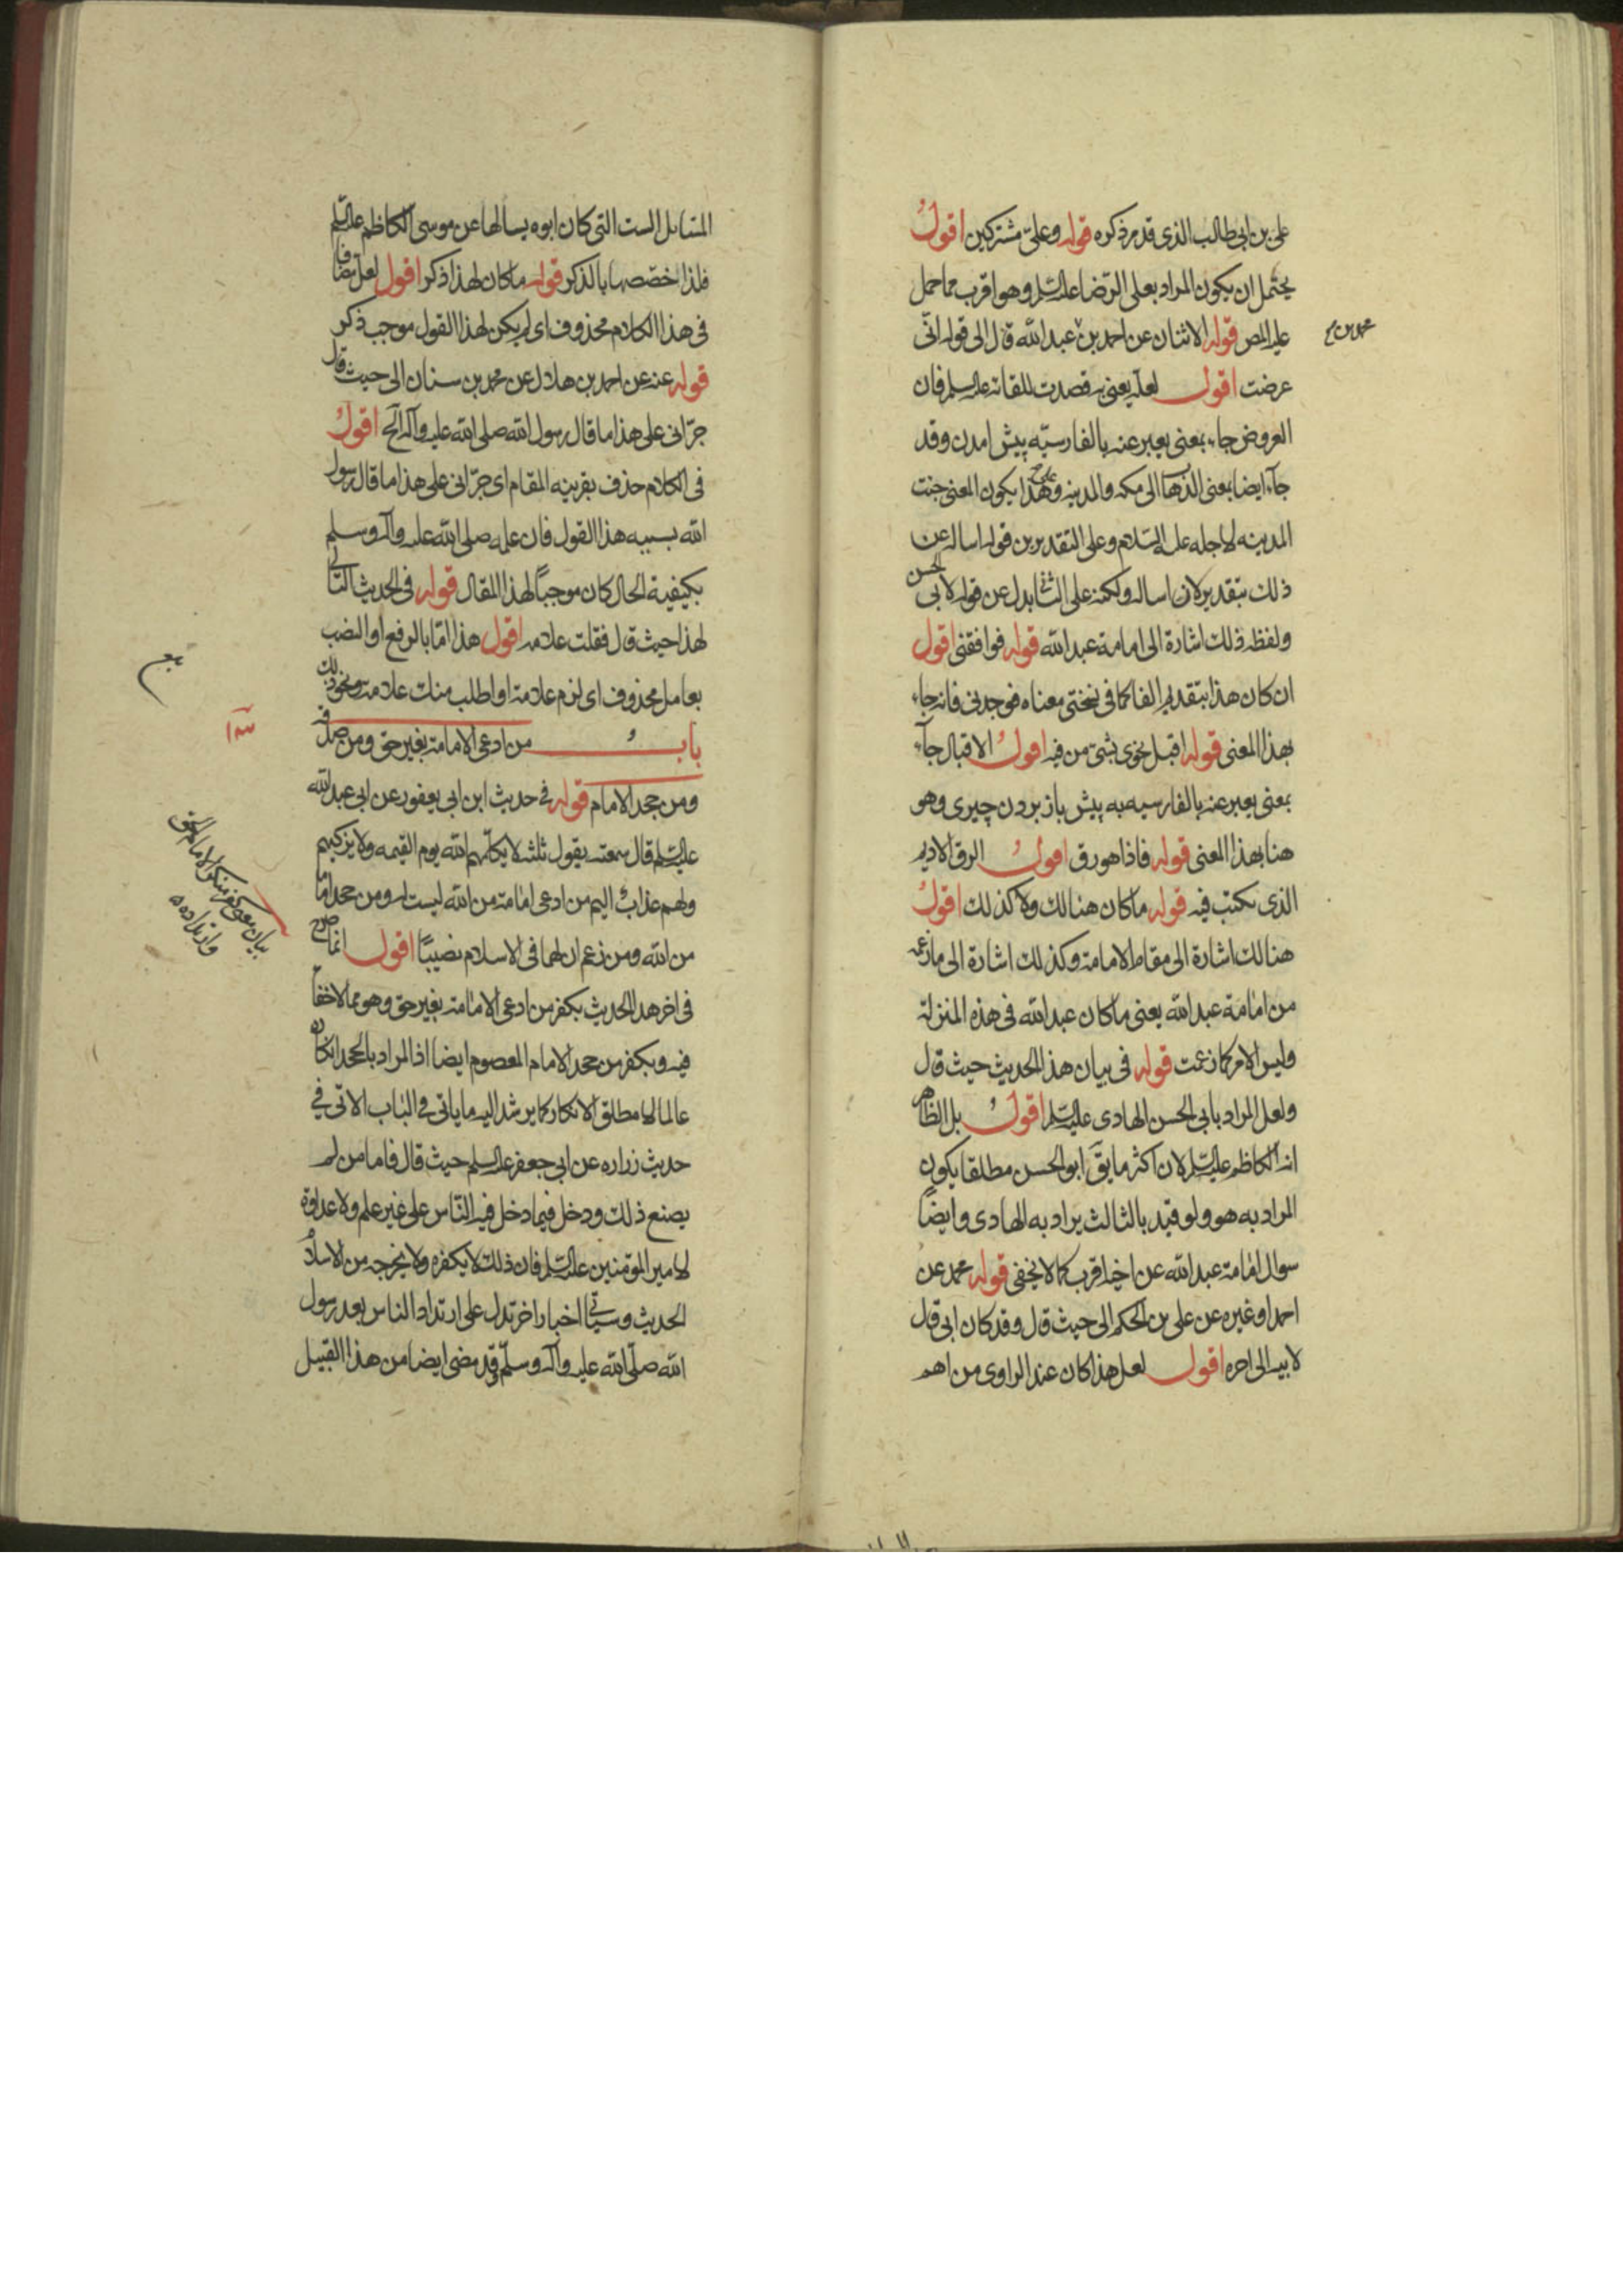 علي بن ابي طالب الذي قد مر ذكره قوله وعليّ مشتركين اقولُ
يحتمل ان يكون المراد بعلي الرّضا عليه السّلم وهو اقرب مما حمل
عليه المص قوله الاثنان عن احمد بن عبد الله قال الى قوله انّي
محمد بن صح
عرضت اقول لعله يعني به قصدت للقائه عليه السلم فان
العروض جاء بمعنى يعبر عنه بالفارسيّه پيش امدن وقد
جاء ايضا بمعنى الذهاب الى مكه والمدينه وعلى هذا يكون المعنى جئت
المدينه لاجله عليه السّلام وعلى التقديرين قوله اساله عن
ذلك بتقدير لان اساله ولكنه على الثاني بدل عن قوله لابي الحسن
ولفظه ذلك اشارة الى امامة عبد الله قوله فوافقني اقول
ان كان هذا بتقديم الفا كما في نسختي معناه فوجدني فانه جاء
بهذا المعنى قوله اقبل نحوي بشيء من فيه اقولُ الاقبال جاء
بمعنى يعبر عنه بالفارسيه به پيش باز بردن چيزي وهو
هنا بهذا المعنى قوله فاذا هو رق اقولُ الرق الاديم
الذي يكتب فيه قوله ما كان هنالك ولا كذلك اقولُ
هنالك اشارة الى مقام الامامة وكذلك اشارة الى ما زعمه
من امامة عبد الله يعني ما كان عبد الله في هذه المنزلة
وليس الامر كما زعمت قوله في بيان هذا الحديث حيث قال
ولعل المراد بابي الحسن الهادي عليه السّلم اقولُ بل الظاهر
انه الكاظم عليه السّلم لان اكثر ما يقَ ابو الحسن مطلقا يكون
المراد به هو ولو قيد بالثالث يراد به الهادي وايضًا
سوال امامة عبد الله عن اخيه اقرب كما لا يخفى قوله محمد عن
احمد او غيره عن علي بن الحكم الى حيث قال وقد كان ابي قال
لابيه الى اخره اقول لعل هذا كان عند الراوي من اهم
المسائل الست التي كان ابوه يسالها عن موسى الكاظم عليه السّلم
فلذا خصّصها بالذكر قوله ما كان لهذا ذكر اقول لعل مضافا
في هذا الكلام محذوف اي لم يكن لهذا القول موجب ذكر
قوله عنه عن احمد بن هلال عن محمد بن سنان الى حيث قال
جرّاني على هذا ما قال رسول الله صلى الله عليه وآله الخ اقولُ
في الكلام حذف بقرينه المقام اي جرّاني على هذا ما قال رسول
الله بسببه هذا القول فان علمه صلى الله عليه وآله وسلم
بكيفية الحال كان موجبًا لهذا المقال قوله في الحديث التالي
لهذا حيث قال فقلت علامه اقول هذا امّا بالرفع او النصب
بعامل محذوف اي لزم علامة او اطلب منك علامة ونحو ذلك
بابُ من ادعى الامامة بغير حق ومن صدقه
ومن جحد الامام قوله في حديث ابن ابي يعفور عن ابي عبد الله
عليه السّلم قال سمعته يقول ثلثه لا يكلّمهم الله يوم القيمه ولا يزكيهم
ولهم عذابٌ اليم من ادعى امامة من الله ليست له ومن جحد اماما
من الله ومن زعم ان لهما في الاسلام نصيبًا اقول انما صرح
في اخر هذا الحديث بكفر من ادعى الامامة بغير حق وهو مما لاخفأ
فيه وبكفر من جحد الامام المعصوم ايضا اذ المراد بالجحد انكاره
عالما لها مطلق الانكار كما يرشد اليه ما ياتي في الباب الاتي في
حديث زراره عن ابي جعفر عليه السلم حيث قال فاما من لم
يصنع ذلك ودخل فيما دخل فيه النّاس على غير علم ولا عداوة
لامير المؤمنين عليه السّلم فان ذلك لا يكفره ولا يخرجه من الاسلام
الحديث وسياتي اخبار اخر تدل على ارتداد الناس بعد رسول
الله صلّى الله عليه وآله وسلّم قد مضى ايضا من هذا القبيل
بيان معنى كفر منكر الامام الحق
وارتداده